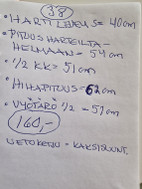 38
• HARTILEVEYS = 40cm
• PITUUS HARTEILTA-
HELMAAN = 54cm
• 1/2 KK = 51cm
• HIHAPITUUS = 62cm
• VYÖTÄRÖ 1/2 = 51cm
160,-
VETOKETJU = KAKSISUUNT.